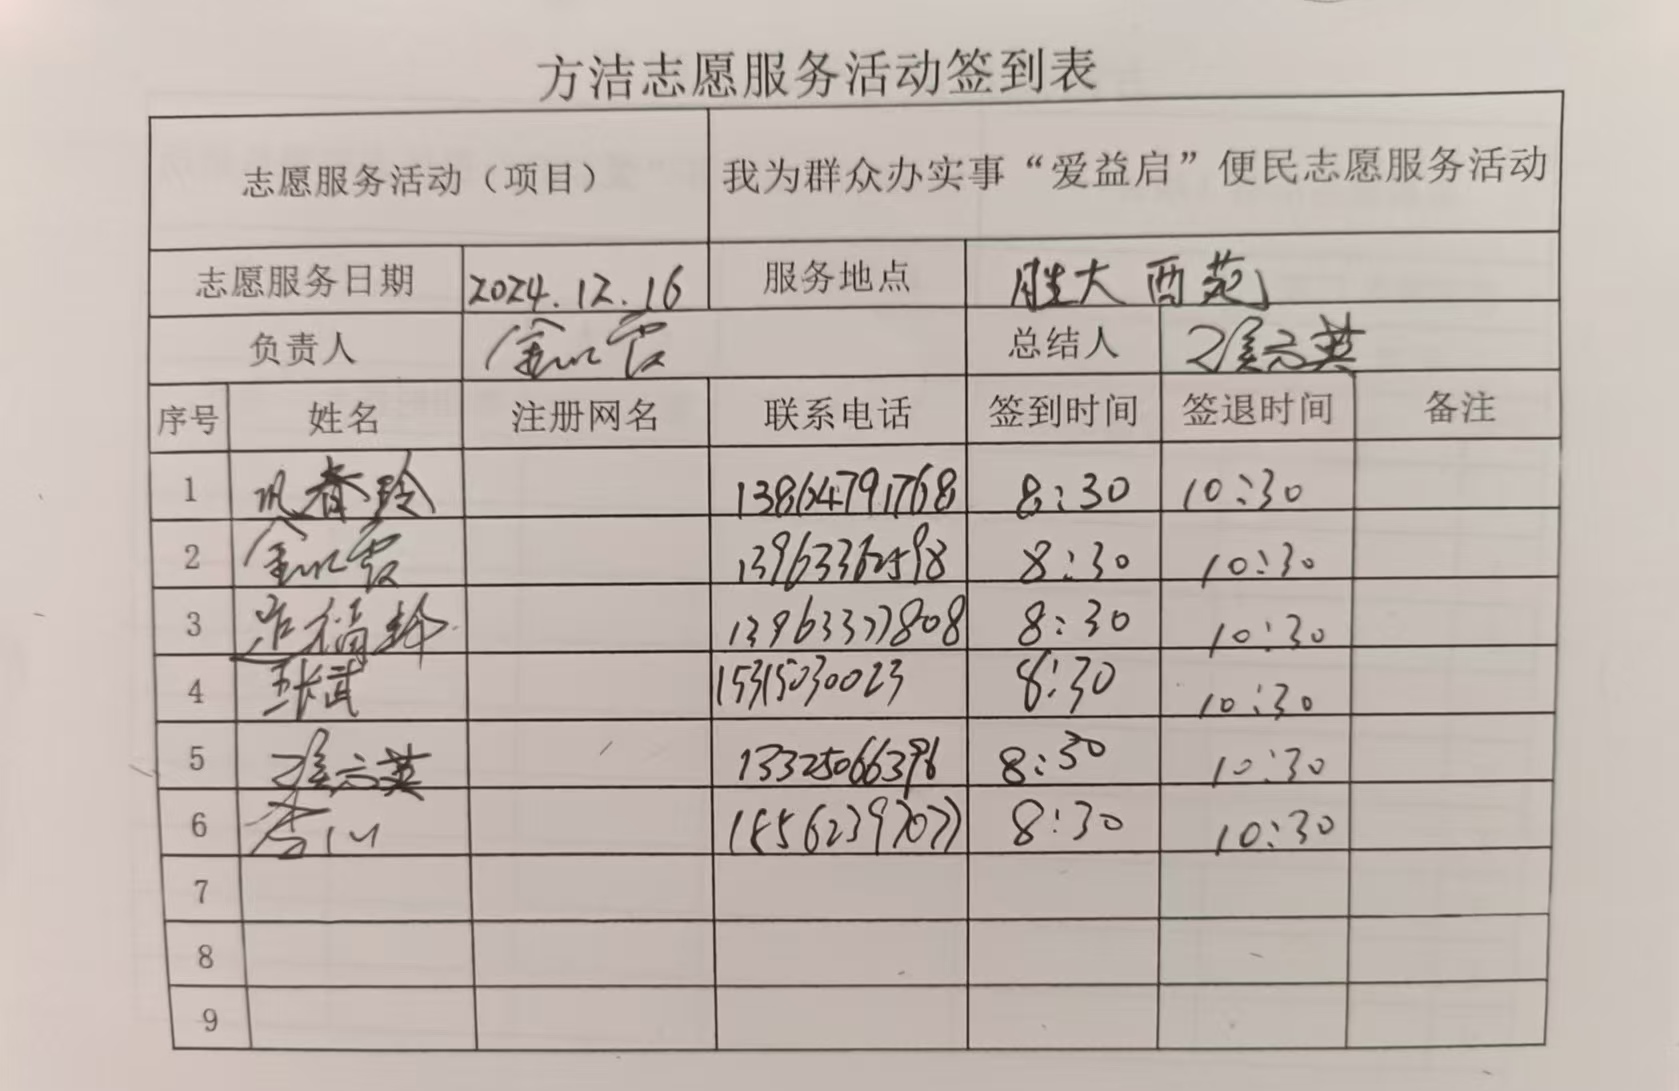 方洁志愿服务活动签到表
志愿服务活动（项目） 我为群众办实事“爱益启”便民志愿服务活动
志愿服务日期 2024.12.16 服务地点 胜大西苑
负责人 总结人
序号 姓名 注册网名 联系电话 签到时间 签退时间 备注
1 巩春玲 13864791768 8:30 10:30
2 13963362598 8:30 10:30
3 13963377808 8:30 10:30
4 15315030023 8:30 10:30
5 13325066396 8:30 10:30
6 15562397077 8:30 10:30
7
8
9